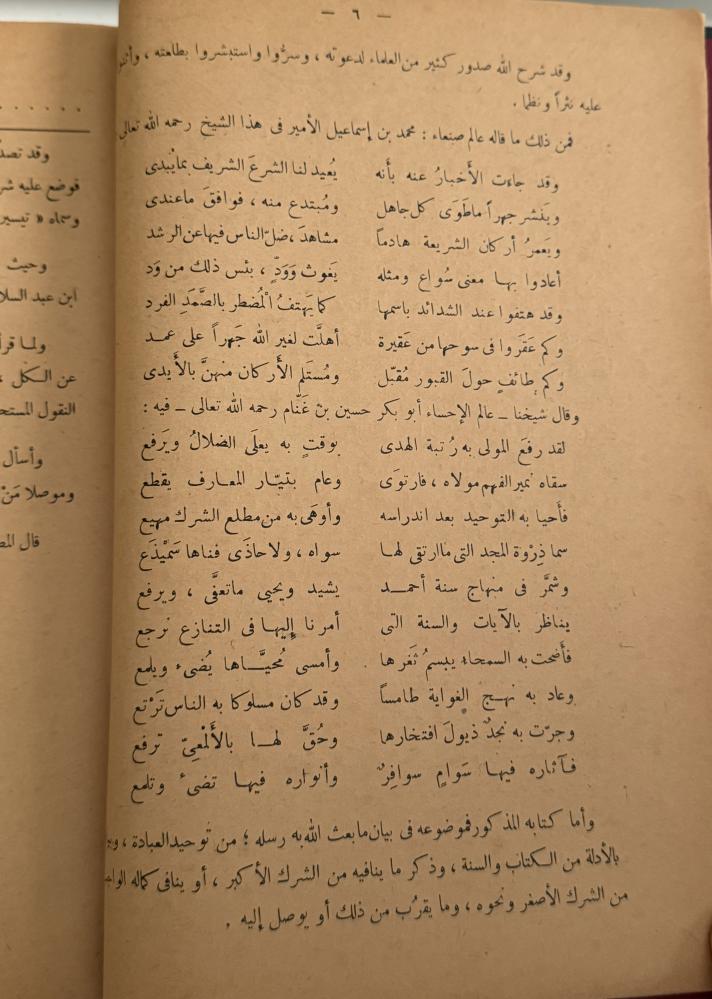 — ٦ —
وقد شرح الله صدور كثير من العلماء لدعوته ، وسرُّوا واستبشروا بطلعته ، وأثنوا
عليه نثراً ونظما .
فمن ذلك ما قاله عالم صنعاء : محمد بن إسماعيل الأمير فى هذا الشيخ رحمه الله تعالى
وقد جاءت الأَخبارُ عنه بأَنه يُعيد لنا الشرعَ الشريف بما يُبدى
وينشر جهراً ما طَوَى كل جاهل ومُبتدع منه ، فوافقَ ما عندى
ويَعمرُ أركان الشريعة هادماً مشاهدَ ، ضلّ الناس فيها عن الرشد
أعادوا بها معنى سُواع ومثله يَغوث وَوَدٍّ ، بئس ذلك من وَد
وقد هتفوا عند الشدائد باسمها كما يَهتفُ الْمُضطر بالصَّمَدِ الفرد
وكم عَقَروا فى سوحها من عَقيرة أهلَّت لغير الله جَهراً على عمد
وكم طائفٍ حولَ القبور مُقبّل ومُستَلم الأَركان منهنَّ بالأَيدى
وقال شيخنا ــ عالم الإحساء أبو بكر حسين بن غَنَّام رحمه الله تعالى ــ فيه :
لقد رفعَ المولى به رُتبة الهدى بوقتٍ به يعلَى الضلالُ ويَرفع
سقاه نمير الفهم مولاه ، فارتوَى وعام بتيّار المعارف يقطع
فأَحيا به التوحيد بعد اندراسه وأوهَى به من مطلع الشرك مهيع
سما ذِرْوة المجد التى ما ارتقى لها سواه ، ولا حاذَى فناها سَمَيْذَع
وشمَّر فى منهاج سنة أحمد يشيد ويحيى ما تعفَّى ، ويرفع
يناظر بالآيات والسنة التى أمرنا إليها فى التنازع نرجع
فأَضحت به السمحاء يبسمُ ثغرها وأمسى مُحيَّاها يُضىء ويلمع
وعاد به نهج الغواية طامساً وقد كان مسلوكا به الناس تَرْتع
وجرّت به نجدٌ ذيولَ افتخارها وحُقَّ لها بالأَلمعِىّ ترفع
فآثاره فيها سَوامٍ سوافِرٌ وأنواره فيها تضىءُ وتلمع
وأما كتابه المذكور فموضوعه فى بيان ما بعث الله به رسله ؛ من توحيد العبادة ،
بالأدلة من الكتاب والسنة ، وذكر ما ينافيه من الشرك الأكبر ، أو ينافى كماله
من الشرك الأصغر ونحوه ، وما يقرُب من ذلك أو يوصل إليه .
وقد
فوضع عليه
وسماه «
وحيث
ابن عبد
ولما
عن الكل ،
النقول
وأسأل
وموصلا مَنْ
قال